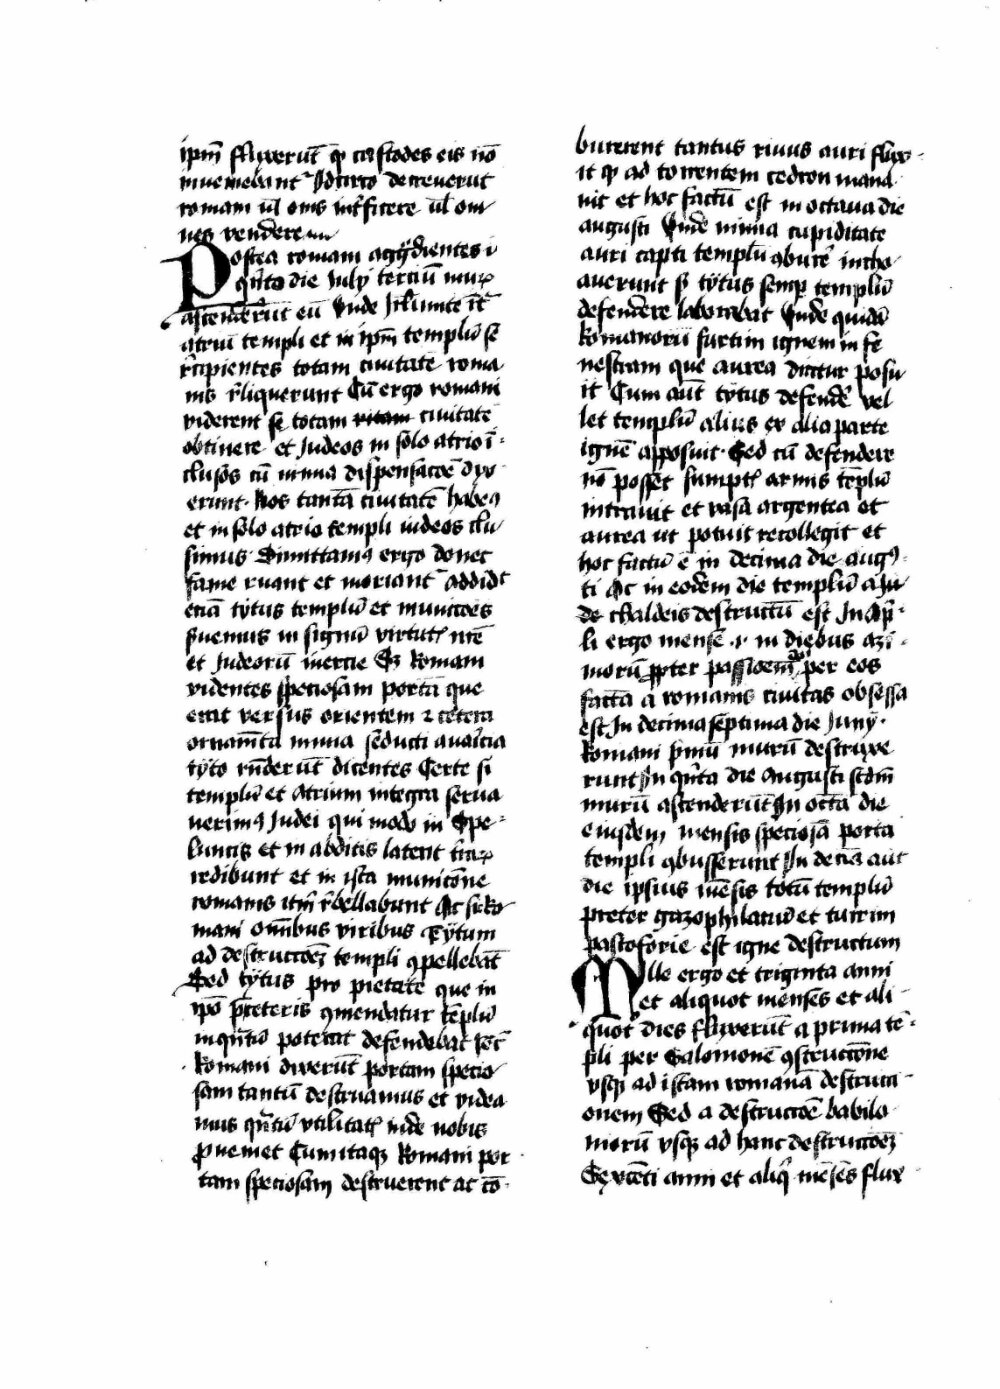 ipm̄ fluxerūt qͥ custodes eis nō
inueniebant Idcirco decreuerūt
romani ul̄ om̄s int̄ficere ul̄ om̄
nes vendere
Postea romani aggͥdientes i
qͥnto die Iulÿ terciū murꝫ
ascenderūt eū Vnde Ihrl̄imite īt̄
atriū templi et in ipm̄ templū se
r̄cipientes totam ciuitatē roma
nis r̄liquerunt Cū ergo romani
viderent se totam vitam ciuitatē
obtinere et Judeos in solo atrio ī
clusos cū nimia dispensacōe dix
erunt · Nos tantā ciuitatē habeꝰ
et in solo atrio templi iudeos clu
simus Dimittamꝰ ergo donec
fame ruant et moriant᷑ addidͭ
eciā tÿtus templū et municōes
s̄uemus in signū virtut̄ nr̄e
et Judeorū inercie Sꝫ Romani
videntes speciosam portā que
erat versus orientem ⁊ cetera
ornam̄ta nimia seducti auaīcia
tÿto rn̄derūt dicentes Certe si
templū et atrium integra serua
uerimꝰ Judei qui modo in Spe
luncis et in abditis latent
redibunt et in ista municōne
romanis itm̄ r̄bellabunt Ac sic Ro
mani om̄ibus viribus Tÿtum
ad destructōeꝫ templi ꝯpellebāt
Sed tÿtus pro pietate que in
ip̄o p̄reteris ꝯmendatur templū
inqͣntū poterat defendebat
Romani dixerūt portam specio
sam tantū destruamus et videa
mus qͣntū vtilitatꝭ inde nobis
ꝓuemet Cumitaqꝫ Romani por
tam speciosam destruerent ac cō
burerent tantus riuus auri flux
it qͥ ad torrentem cedron mana
uit et hoc factū est in octaua die
augusti Vnde nimia cupiditate
auri capti templū ꝯburē incho
auerunt sꝫ tÿtus semꝑ templū
defendere laborabat Vnde quidā
Romanorū furtim ignem in fe
nestram que aurea dicitur posu
it Cum aūt tÿtus defendē vel
let templū alius ex alia parte
ignē apposuit · Sed cū defendere
nō posset sumptꝭ armis templū
intrauit et vasa argentea et
aurea ut potuit recollegit et
hoc factū ē in decima die augꝰ
ti Ac in eodem die templū a Ju
de chaldeis destructū est In ap̄
li ergo mense ·i· in diebus azi
morū ꝓpter passioem̄ per eos
factā a romanis ciuitas obsessa
est In decima septima die Junÿ
Romani p̄mū murū destruxe
runt In qͥnta die augusti scd̄m
murū ascenderūt In octā die
eiusdem mensis speciosā portā
templi ꝯbusserunt In deciā aūt
die ipsius mēsis totū templū
preter gazophilaciū et turrim
pastoforie est igne destructum
Mille ergo et triginta anni
et aliquot menses et ali
quot dies fluxerūt a prima tē
pli per Salomonē ꝯstructōne
vsqꝫ ad istam romanā destructi
onem Sed a destructōe babilo
niorū vsqꝫ ad hanc destructōeꝫ
Sexcēti anni et aliqͦ mēses flux